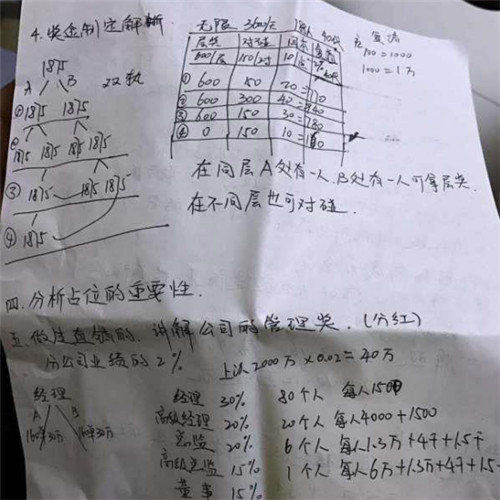 4.奖金制定解析
无限 3600/天
层奖 对碰
600/层 150/对
1875
A B 22执
① 1875 1875
② 1875 1875 1875 1875
③ 1875 1875 1875
④ 1875
① 600 150 20=770
② 600 300 40=940
③ 600 150 30=780
④ 0 150 10=160
100=1000
1000=1万
在同层A处有一人,B处有一人可拿层奖.
在不同层也可对碰.
四.分析占位的重要性.
五.做过直销的,讲解公司的管理奖.(分红)
分公司业绩的2% 上认2000万×0.02=40万
经理
A B
经理 30% 80个人 每人1500
高级经理 20% 20个人 每人4000+1500
总监 20% 6个人 每人1.3万+4千+1.5千
高级总监 15% 1个人 每人6万+1.3万+4千+1.5
董事 15%